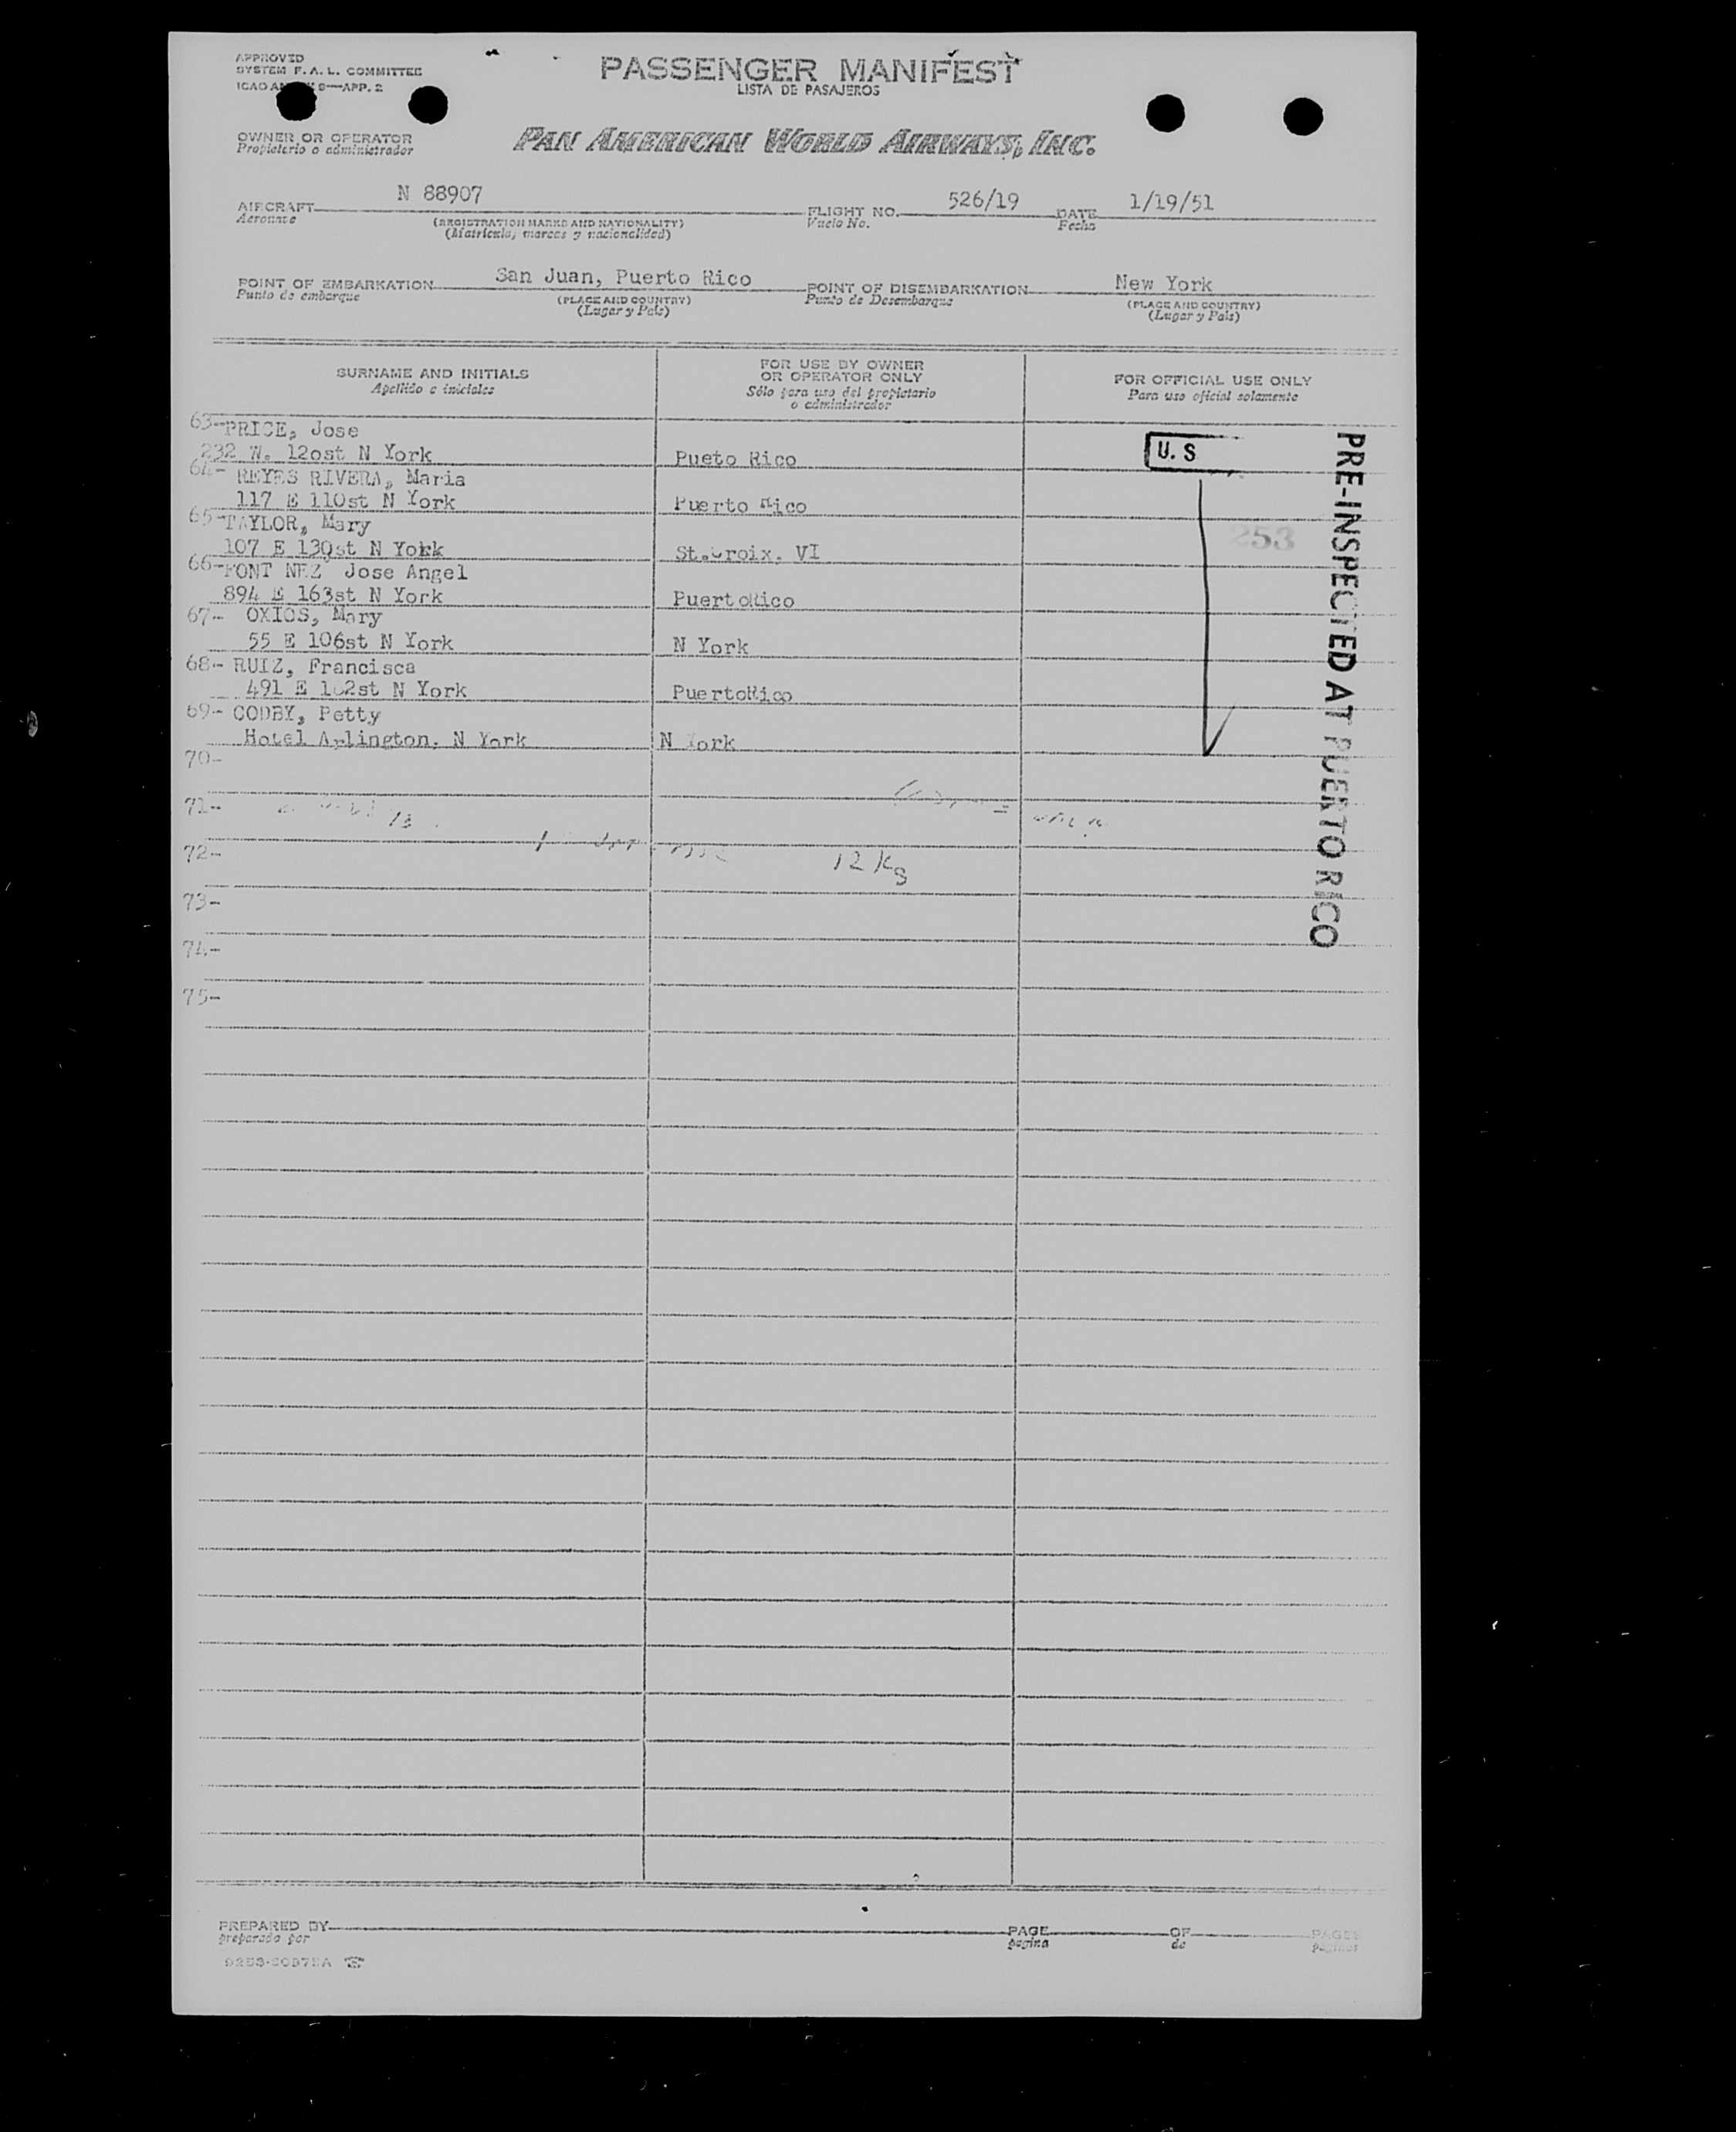 APPROVED
SYSTEM F. A. L. COMMITTEE
ICAO 9—APP. 2
PASSENGER MANIFEST
LISTA DE PASAJEROS
OWNER OR OPERATOR
Propietario o administrador
PAN AMERICAN WORLD AIRWAYS, INC.
AIRCRAFT N 88907 FLIGHT NO. 526/19 DATE 1/19/51
Aeronave (REGISTRATION MARKS AND NATIONALITY) Vuelo No. Fecha
(Matricula, marcas y nacionalidad)
POINT OF EMBARKATION San Juan, Puerto Rico POINT OF DISEMBARKATION New York
Punto de embarque (PLACE AND COUNTRY) Punto de Desembarque (PLACE AND COUNTRY)
(Lugar y País) (Lugar y País)
SURNAME AND INITIALS
Apellido e iniciales
FOR USE BY OWNER
OR OPERATOR ONLY
Sólo para uso del propietario
o administrador
FOR OFFICIAL USE ONLY
Para uso oficial solamente
63- PRICE, Jose
232 W. 12ost N York Pueto Rico
U. S
64- REYES RIVERA, Maria
117 E 110st N York Puerto Rico
65- TAYLOR, Mary
107 E 130st N York St.Croix, VI
253
66- FONT NEZ Jose Angel
894 E 163st N York PuertoRico
67- OXIOS, Mary
55 E 106st N York N York
68- RUIZ, Francisca
491 E 162st N York PuertoRico
69- CODBY, Petty
Hotel Arlington. N York N York
70-
71-
72- 12 Ks
73-
74-
75-
PRE-INSPECTED AT PUERTO RICO
PREPARED BY PAGE OF PAGES
preparado por pagina de paginas